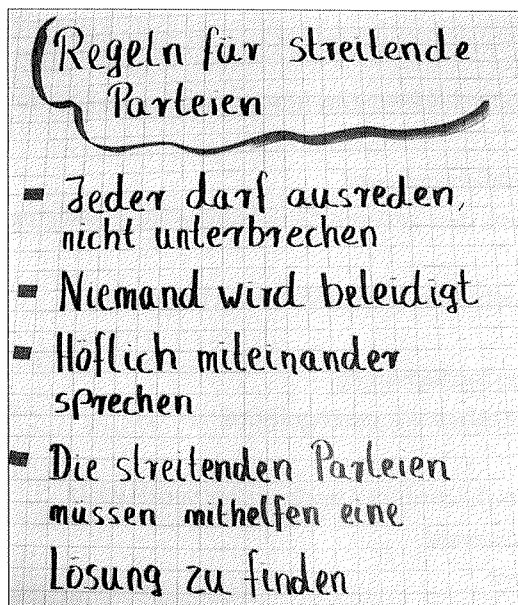 Regeln für streitende
Parteien
Jeder darf ausreden,
nicht unterbrechen
Niemand wird beleidigt
Höflich miteinander
sprechen
Die streitenden Parteien
müssen mithelfen eine
Lösung zu finden